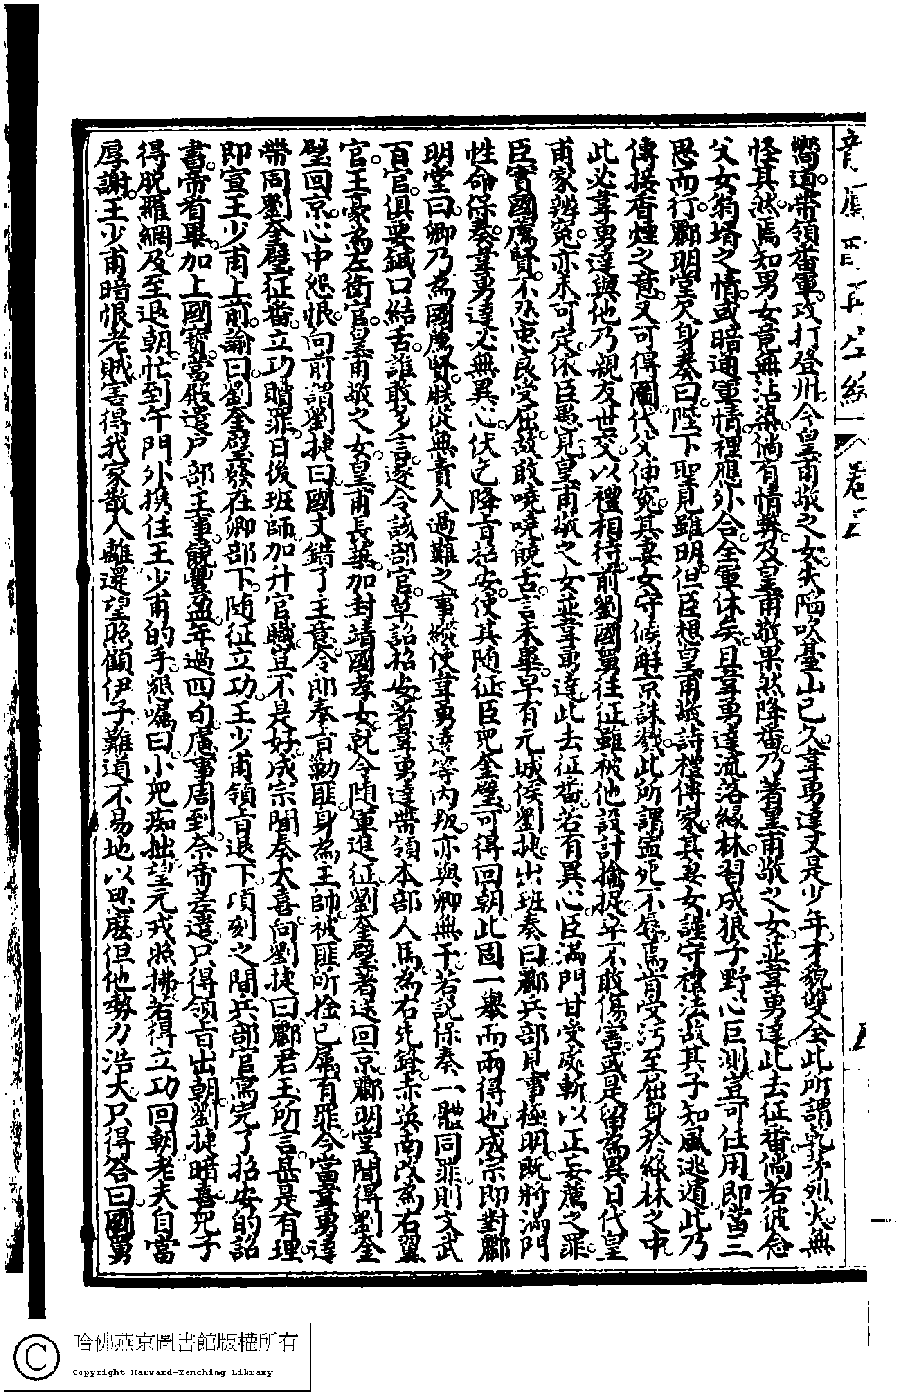 嚮道帶領番軍攻打登州令皇甫敬之女失陷吹臺山已久韋勇達又是少年才貌雙全此所謂乾茅烈火無
怪其然焉知男女竟無沾染倘有情弊及皇甫敬果然降番乃著皇甫敬之女並韋勇達此去征番倘若彼念
父女翁壻之情或暗通軍情裡應外合全軍休矣且韋勇達流落綠林習成狼子野心叵測豈可任用即當三
思而行酈明堂欠身奏曰陛下聖見雖明但臣想皇甫敬詩禮傳家其妻女謹守禮法故其子知風逃遁此乃
傳接香煙之意又可得圖代父伸寃其妻女守候解京誅戮此所謂盂死不辱焉肯受污至屈身於綠林之中
此必韋勇達與他乃親友世交以禮相待前劉國舅往征雖被他設計擒捉卒不敢傷害或是留為異日代皇
甫家辨寃亦未可定依臣愚見皇甫敬之女並韋勇達此去征番若有異心臣滿門甘受處斬以正妄薦之罪
臣實國薦賢不忍忠良受屈故敢嘵嘵饒舌言未畢早有元城侯劉捷出班奏曰酈兵部見事極明既將滿門
性命保奏韋勇達必無異心伏乞降旨招安使其隨征臣兒奎璧可得回朝此固一舉而兩得也成宗即對酈
明堂曰卿乃為國薦賢朕從無責人過難之事縱使韋勇達等內叛亦與卿無干若說保奏一體同罪則文武
百官俱要鉗口結舌誰敢多言遂令該部官草詔招安著韋勇達帶領本部人馬為右先鋒赤英南改為右翼
官王豪為左衝官皇甫敬之女皇甫長華加封靖國孝女就令隨軍進征劉奎璧著送回京酈明堂聞得劉奎
璧回京心中怨恨向前謂劉捷曰國丈錯了主意令郎奉旨勦匪身為主帥被匪所捡已屬有罪今當韋勇達
帶同劉奎璧征番立功贖罪日後班師加升官職豈不是好成宗聞奏大喜向劉捷曰酈君王所言甚是有理
即宣王少甫上前諭曰劉奎璧發在卿部下隨征立功王少甫領旨退下頃刻之間兵部官寫完了招安的詔
書帝看畢加上國寶當殿遣戶部主事饒豐盈年過四旬慮事周到奈帝差遣只得領旨出朝劉捷暗喜兒子
得脫羅網及至退朝忙到午門外挽住王少甫的手懇囑曰小兒痴拙望元戎照拂若得立功回朝老夫自當
厚謝王少甫暗恨老賊害得我家散人離還望照顧伊子難道不易地以思麽但他勢力浩大只得答曰國舅
哈佛燕京圖書館版權所有
Copyright Harvard-Yenching Library